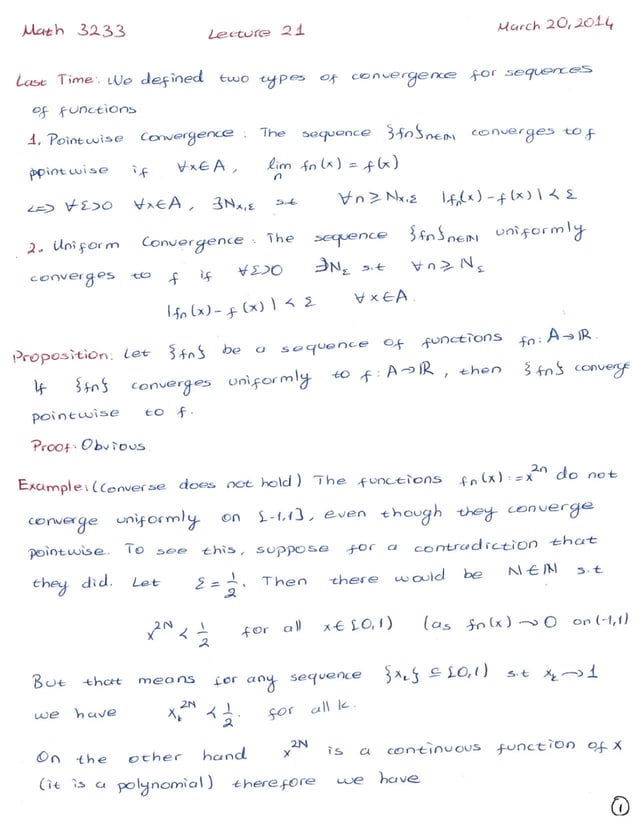 Math 3233 Lecture 21 March 20, 2014
Last Time: We defined two types of convergence for sequences
of functions
1. Pointwise Convergence: The sequence {fn}n∈ℕ converges to f
pointwise if ∀x∈A, lim_n fn(x) = f(x)
<=> ∀ε>0 ∀x∈A, ∃N_{x,ε} s.t ∀n≥N_{x,ε} |fn(x)-f(x)|<ε
2. Uniform Convergence: The sequence {fn}n∈ℕ uniformly
converges to f if ∀ε>0 ∃N_ε s.t ∀n≥N_ε
|fn(x)-f(x)|<ε ∀x∈A.
Proposition: Let {fn} be a sequence of functions fn: A→ℝ.
If {fn} converges uniformly to f: A→ℝ, then {fn} converge
pointwise to f.
Proof: Obvious
Example: (Converse does not hold) The functions fn(x):=x^{2n} do not
converge uniformly on [-1,1], even though they converge
pointwise. To see this, suppose for a contradiction that
they did. Let ε=1/2. Then there would be N∈ℕ s.t
x^{2N} < 1/2 for all x∈[0,1) (as fn(x)→0 on (-1,1)
But that means for any sequence {x_k}⊆[0,1) s.t x_k→1
we have x_k^{2N} < 1/2. for all k.
On the other hand x^{2N} is a continuous function of x
(it is a polynomial) therefore we have
1